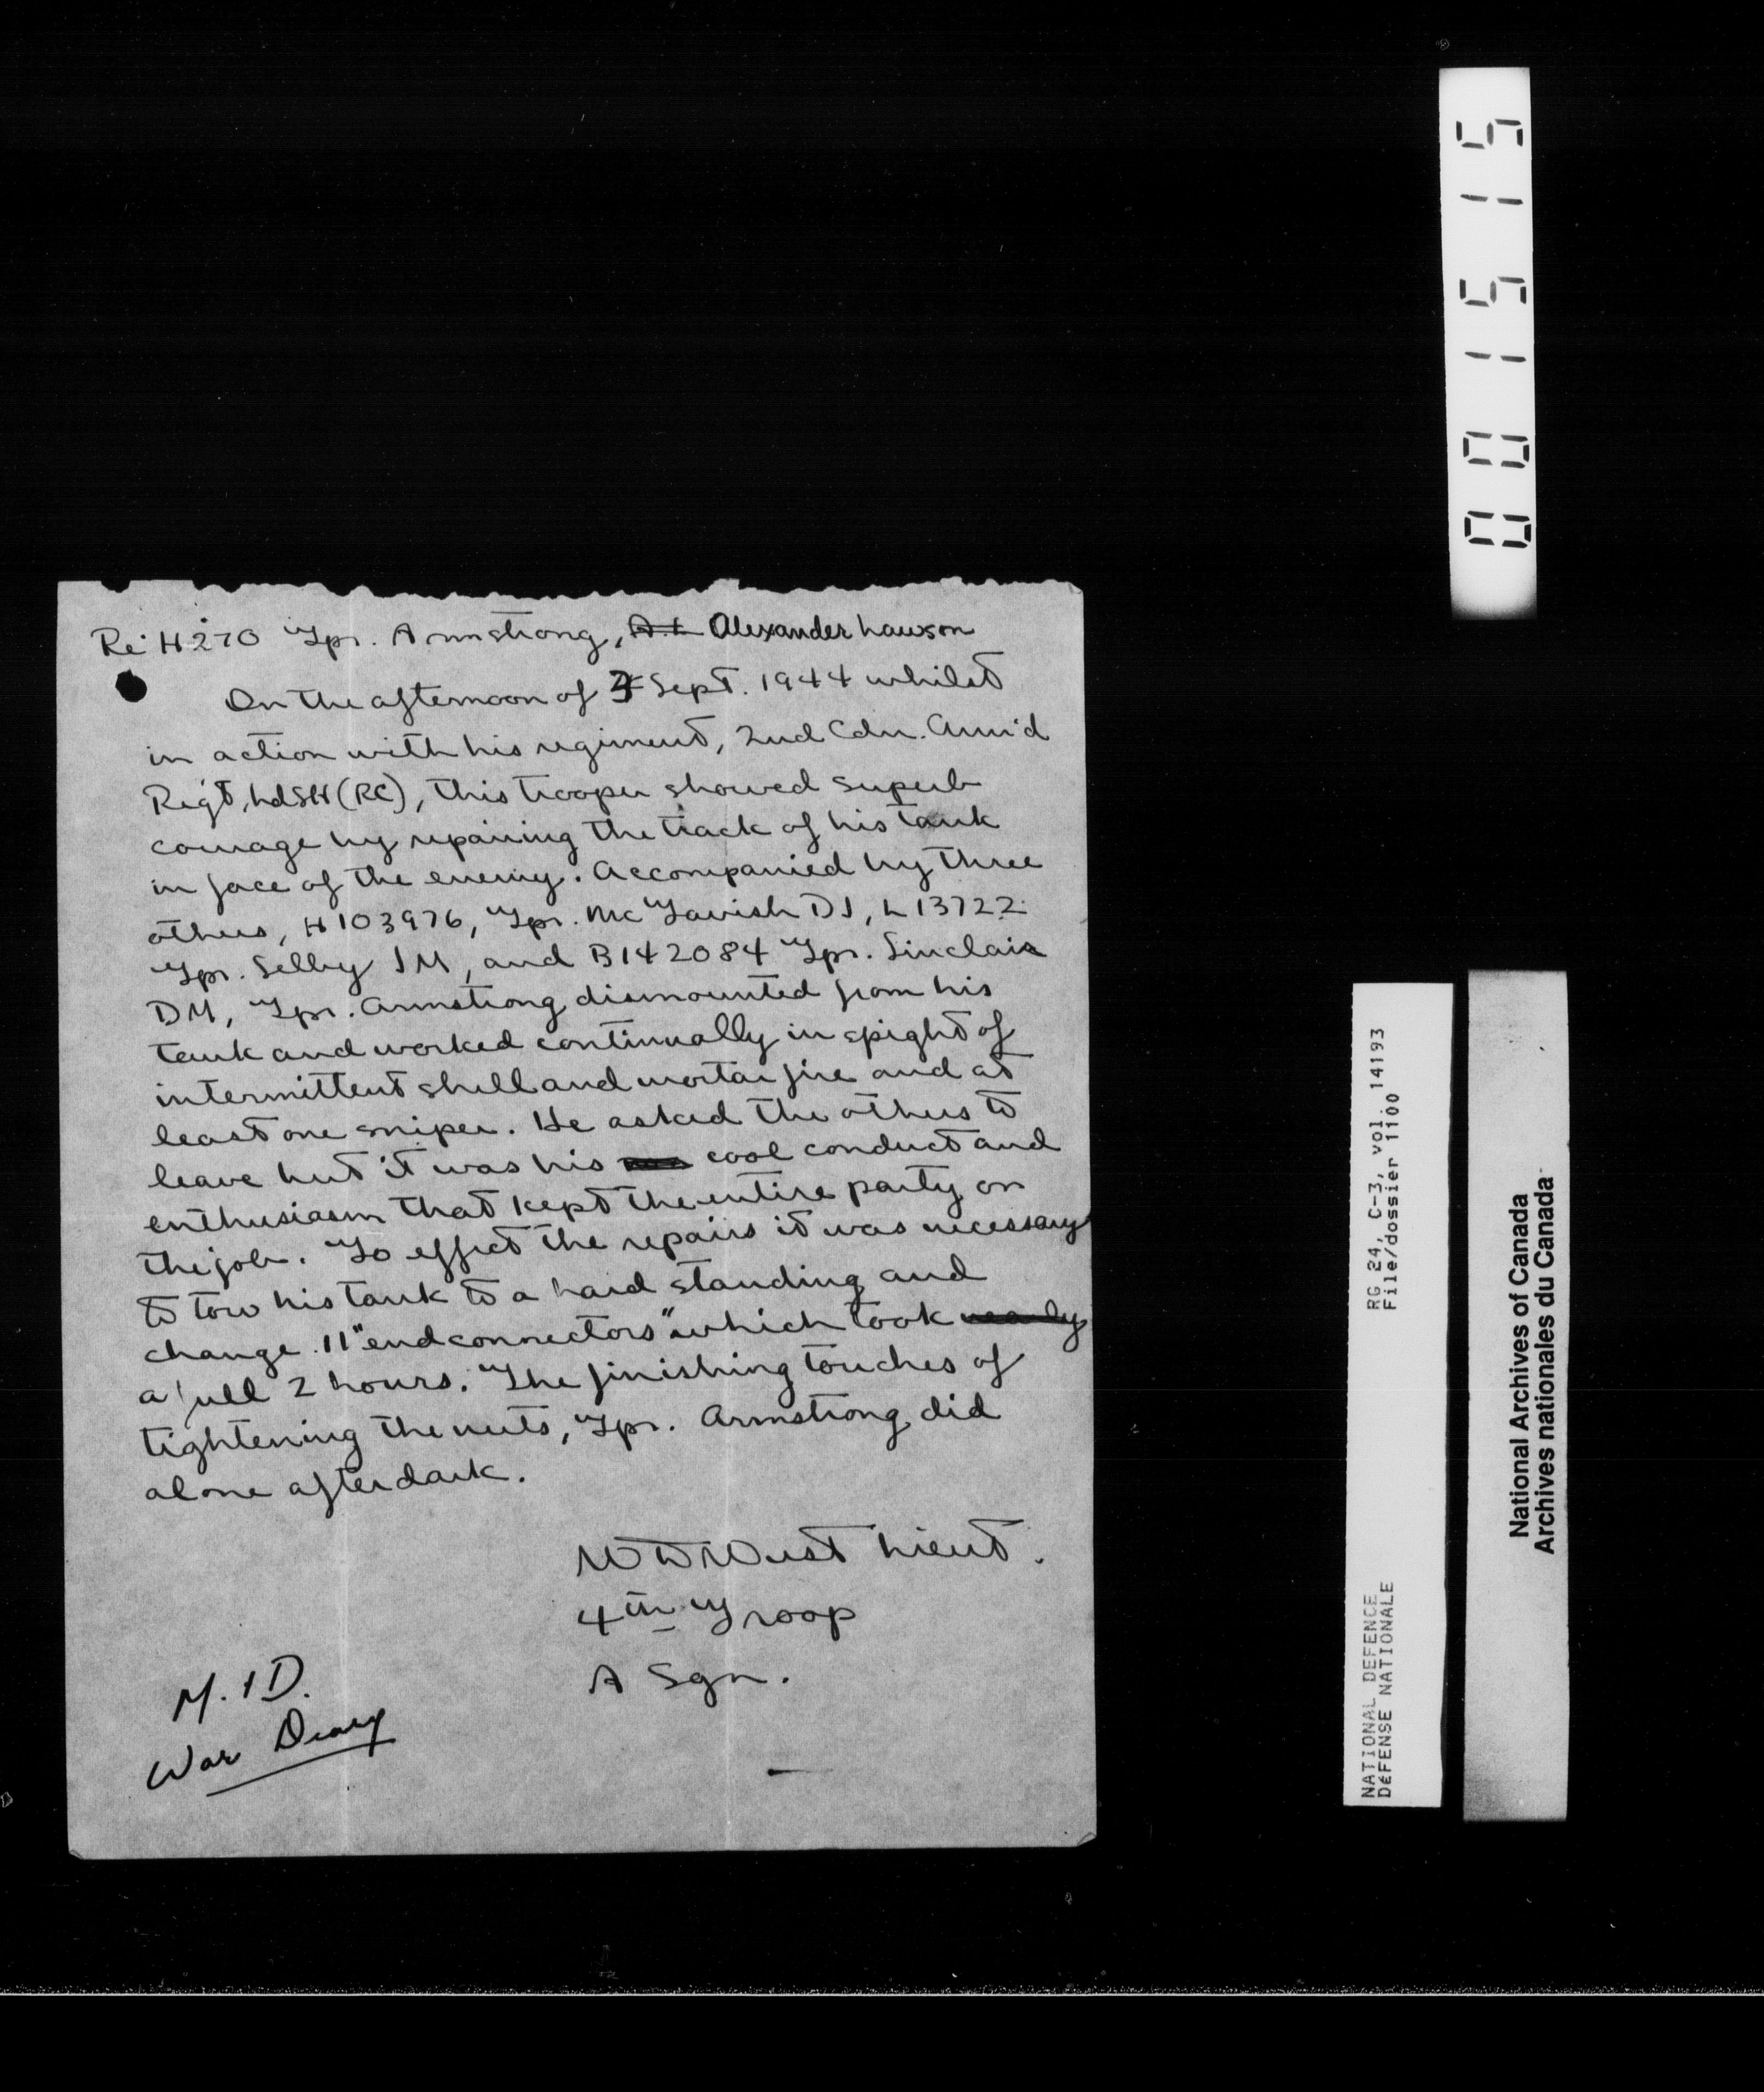 Re: H270 Tpr. Armstrong, A.L. Alexander Lawson
On the afternoon of Sept. 1944 whilst
in action with his regiment, 2nd Cdn. Arm'd
Reg't, LdSH (RC), this trooper showed superb
courage by repairing the track of his tank
in face of the enemy. Accompanied by three
others, H103976, Tpr. McTavish DJ, L13722
Tpr. Selby JM, and B142084 Tpr. Sinclair
DM, Tpr. Armstrong dismounted from his
tank and worked continually in spight of
intermittent shell and mortar fire and at
least one sniper. He asked the others to
leave but it was his cool conduct and
enthusiasm that kept the entire party on
the job. To effect the repairs it was necessary
to tow his tank to a hard standing and
change 11 "end connectors" which took nearly
a full 2 hours. The finishing touches of
tightening the nuts, Tpr. Armstrong did
alone after dark.
West Lieut.
4th Troop
A Sqn.
M.I.D.
War Diary
001515
RG 24, C-3, vol. 14193
File/dossier 1100
NATIONAL DEFENCE
DéFENSE NATIONALE
National Archives of Canada
Archives nationales du Canada